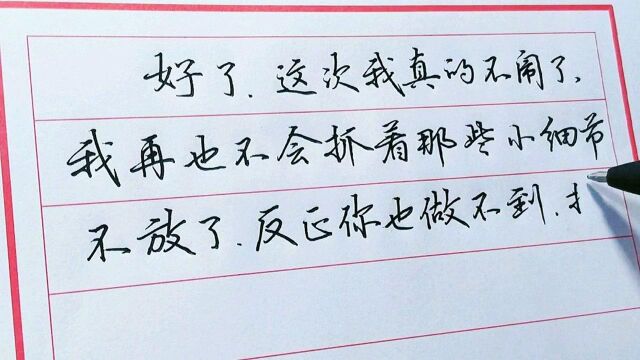 好了.这次我真的不闹了.
我再也不会抓着那些小细节
不放了.反正你也做不到.